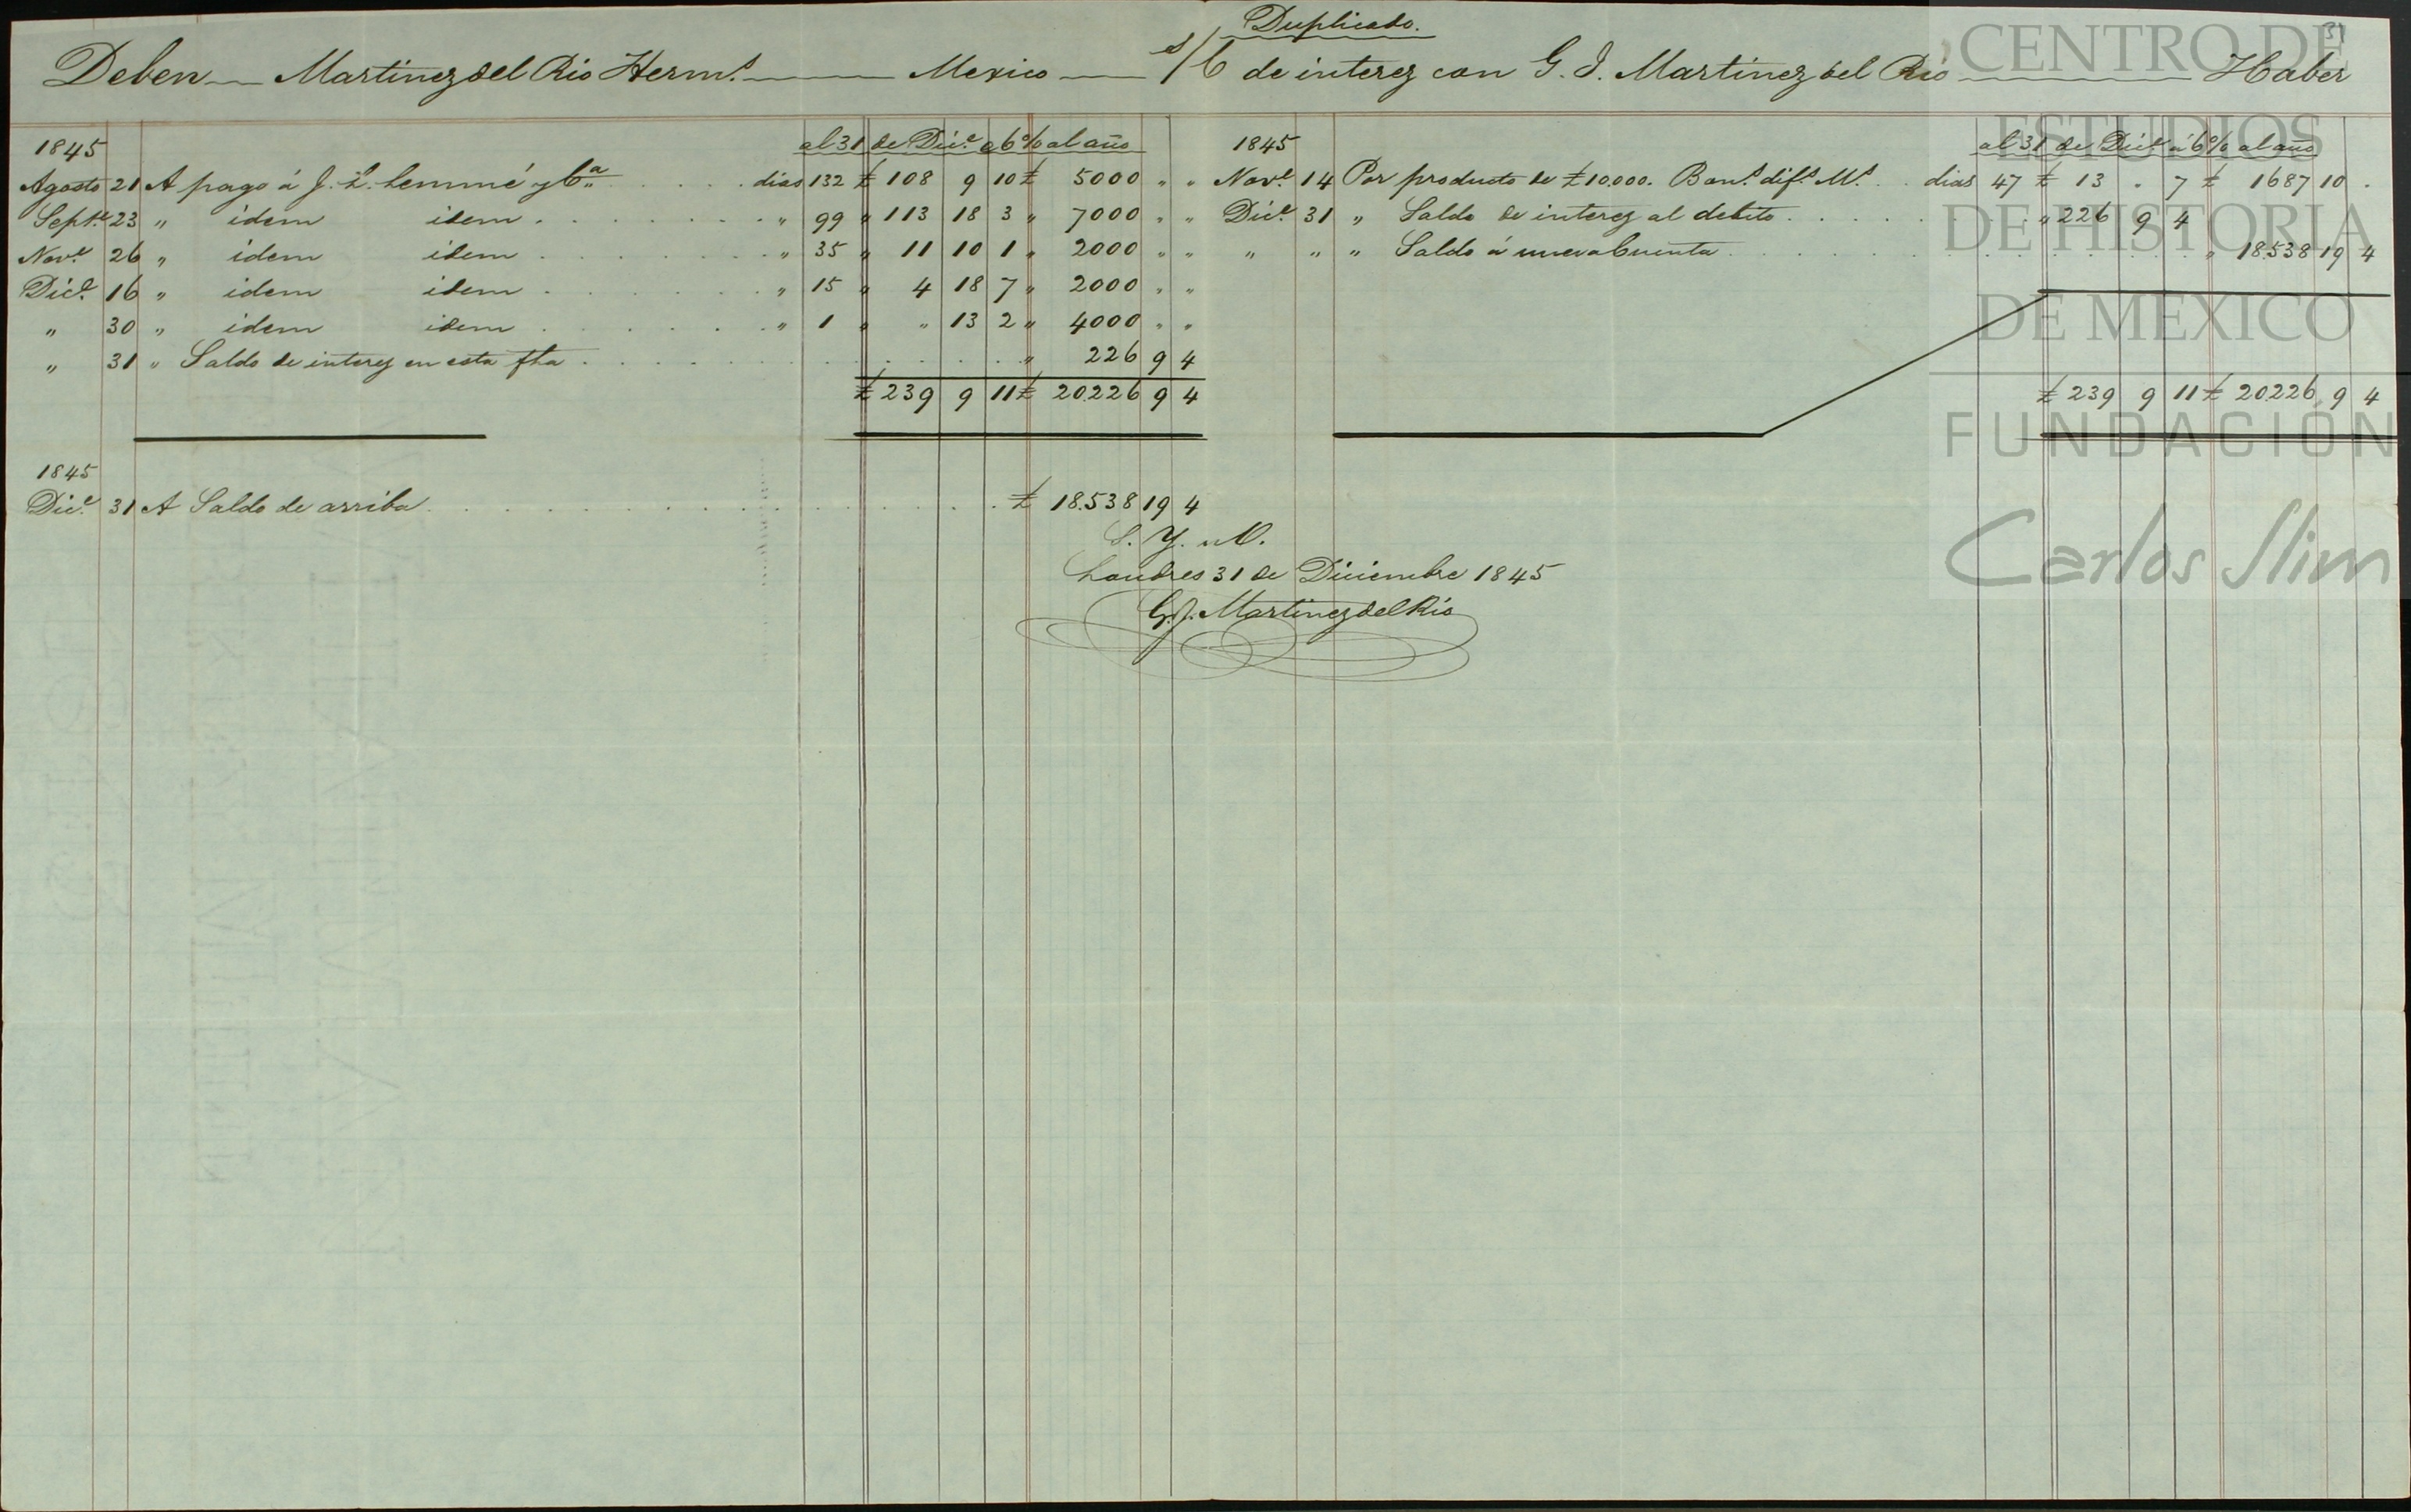 Duplicado.
31
Deben Martinez del Rio Herms. Mexico s/C de interez con G. J. Martinez del Rio Haber
1845 al 31 de Dice. a 6% al año
Agosto 21 A pago á J. L. Lemmé y Ca. dias 132 £ 108 9 10 £ 5000 " "
Septe. 23 " idem idem " 99 " 113 18 3 " 7000 " "
Nove. 26 " idem idem " 35 " 11 10 1 " 2000 " "
Dice. 16 " idem idem " 15 " 4 18 7 " 2000 " "
" 30 " idem idem " 1 " " 13 2 " 4000 " "
" 31 " Saldo de interez en esta fha " 226 9 4
£ 239 9 11 £ 20.226 9 4
1845 al 31 de Dice. á 6% al año
Nove. 14 Por producto de £10.000. Bons. difs. Ms. dias 47 £ 13 " 7 £ 1687 10 "
Dice. 31 " Saldo de interez al debito " 226 9 4
" " " Saldo á nueva Cuenta " 18.538 19 4
£ 239 9 11 £ 20.226 9 4
1845
Dice. 31 A Saldo de arriba £ 18.538 19 4
S. Y. u O.
Londres 31 de Diciembre 1845
G. J. Martinez del Rio
CENTRO DE
ESTUDIOS
DE HISTORIA
DE MEXICO
FUNDACIÓN
Carlos Slim